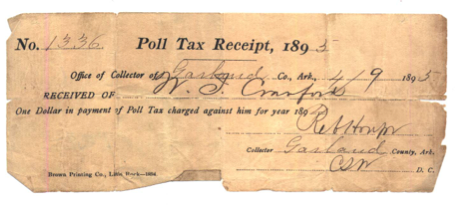 No. 1336 Poll Tax Receipt, 1895
Office of Collector of Garland Co., Ark. 4/9 1895
RECEIVED OF W. J. Crawford
One Dollar in payment of Poll Tax charged against him for year 189
Collector Garland County, Ark.
D. C.
Brown Printing Co., Little Rock—1894.